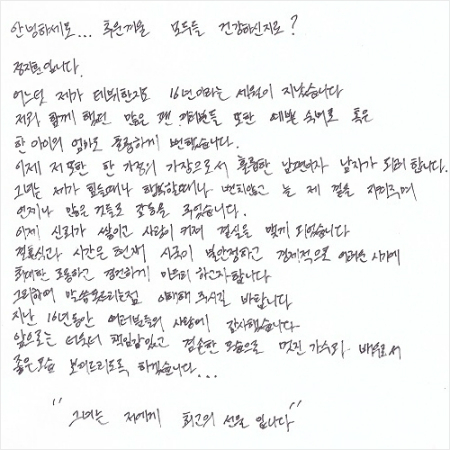 안녕하세요... 추운겨울 모두들 건강하신지요?
정지훈입니다.
어느덧 제가 데뷔한지 16년이라는 세월이 지났습니다
저와 함께 했던 많은 팬 여러분들 또한 예쁜 숙녀로 혹은
한 아이의 엄마로 훌륭하게 변했습니다.
이제 저 또한 한 가정의 가장으로서 훌륭한 남편이자 남자가 되려 합니다.
그녀는 제가 힘들때나 행복할때나 변치않고 늘 제 곁을 지켜주며
언제나 많은 것들로 감동을 주었습니다.
이제 신뢰가 쌓이고 사랑이 커져 결실을 맺게 되었습니다
결혼식과 시간은 현재 시국이 불안정하고 경제적으로 어려운 시기에
최대한 조용하고 경건하게 치르려 하고자 합니다
그리하여 말씀 못드리는점 이해해 주시길 바랍니다
지난 16년동안 여러분들의 사랑에 감사했습니다
앞으로는 더욱더 책임감있고 겸손한 모습으로 멋진 가수와 배우로서
좋은모습 보여드리도록 하겠습니다...
"그녀는 저에게 최고의 선물 입니다"